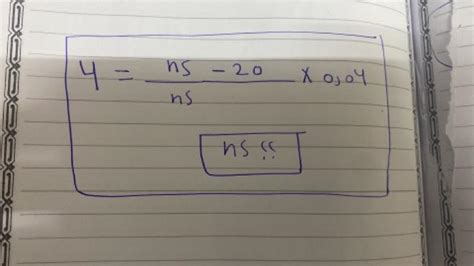 4 = ns - 20 / ns × 0,04
ns ??